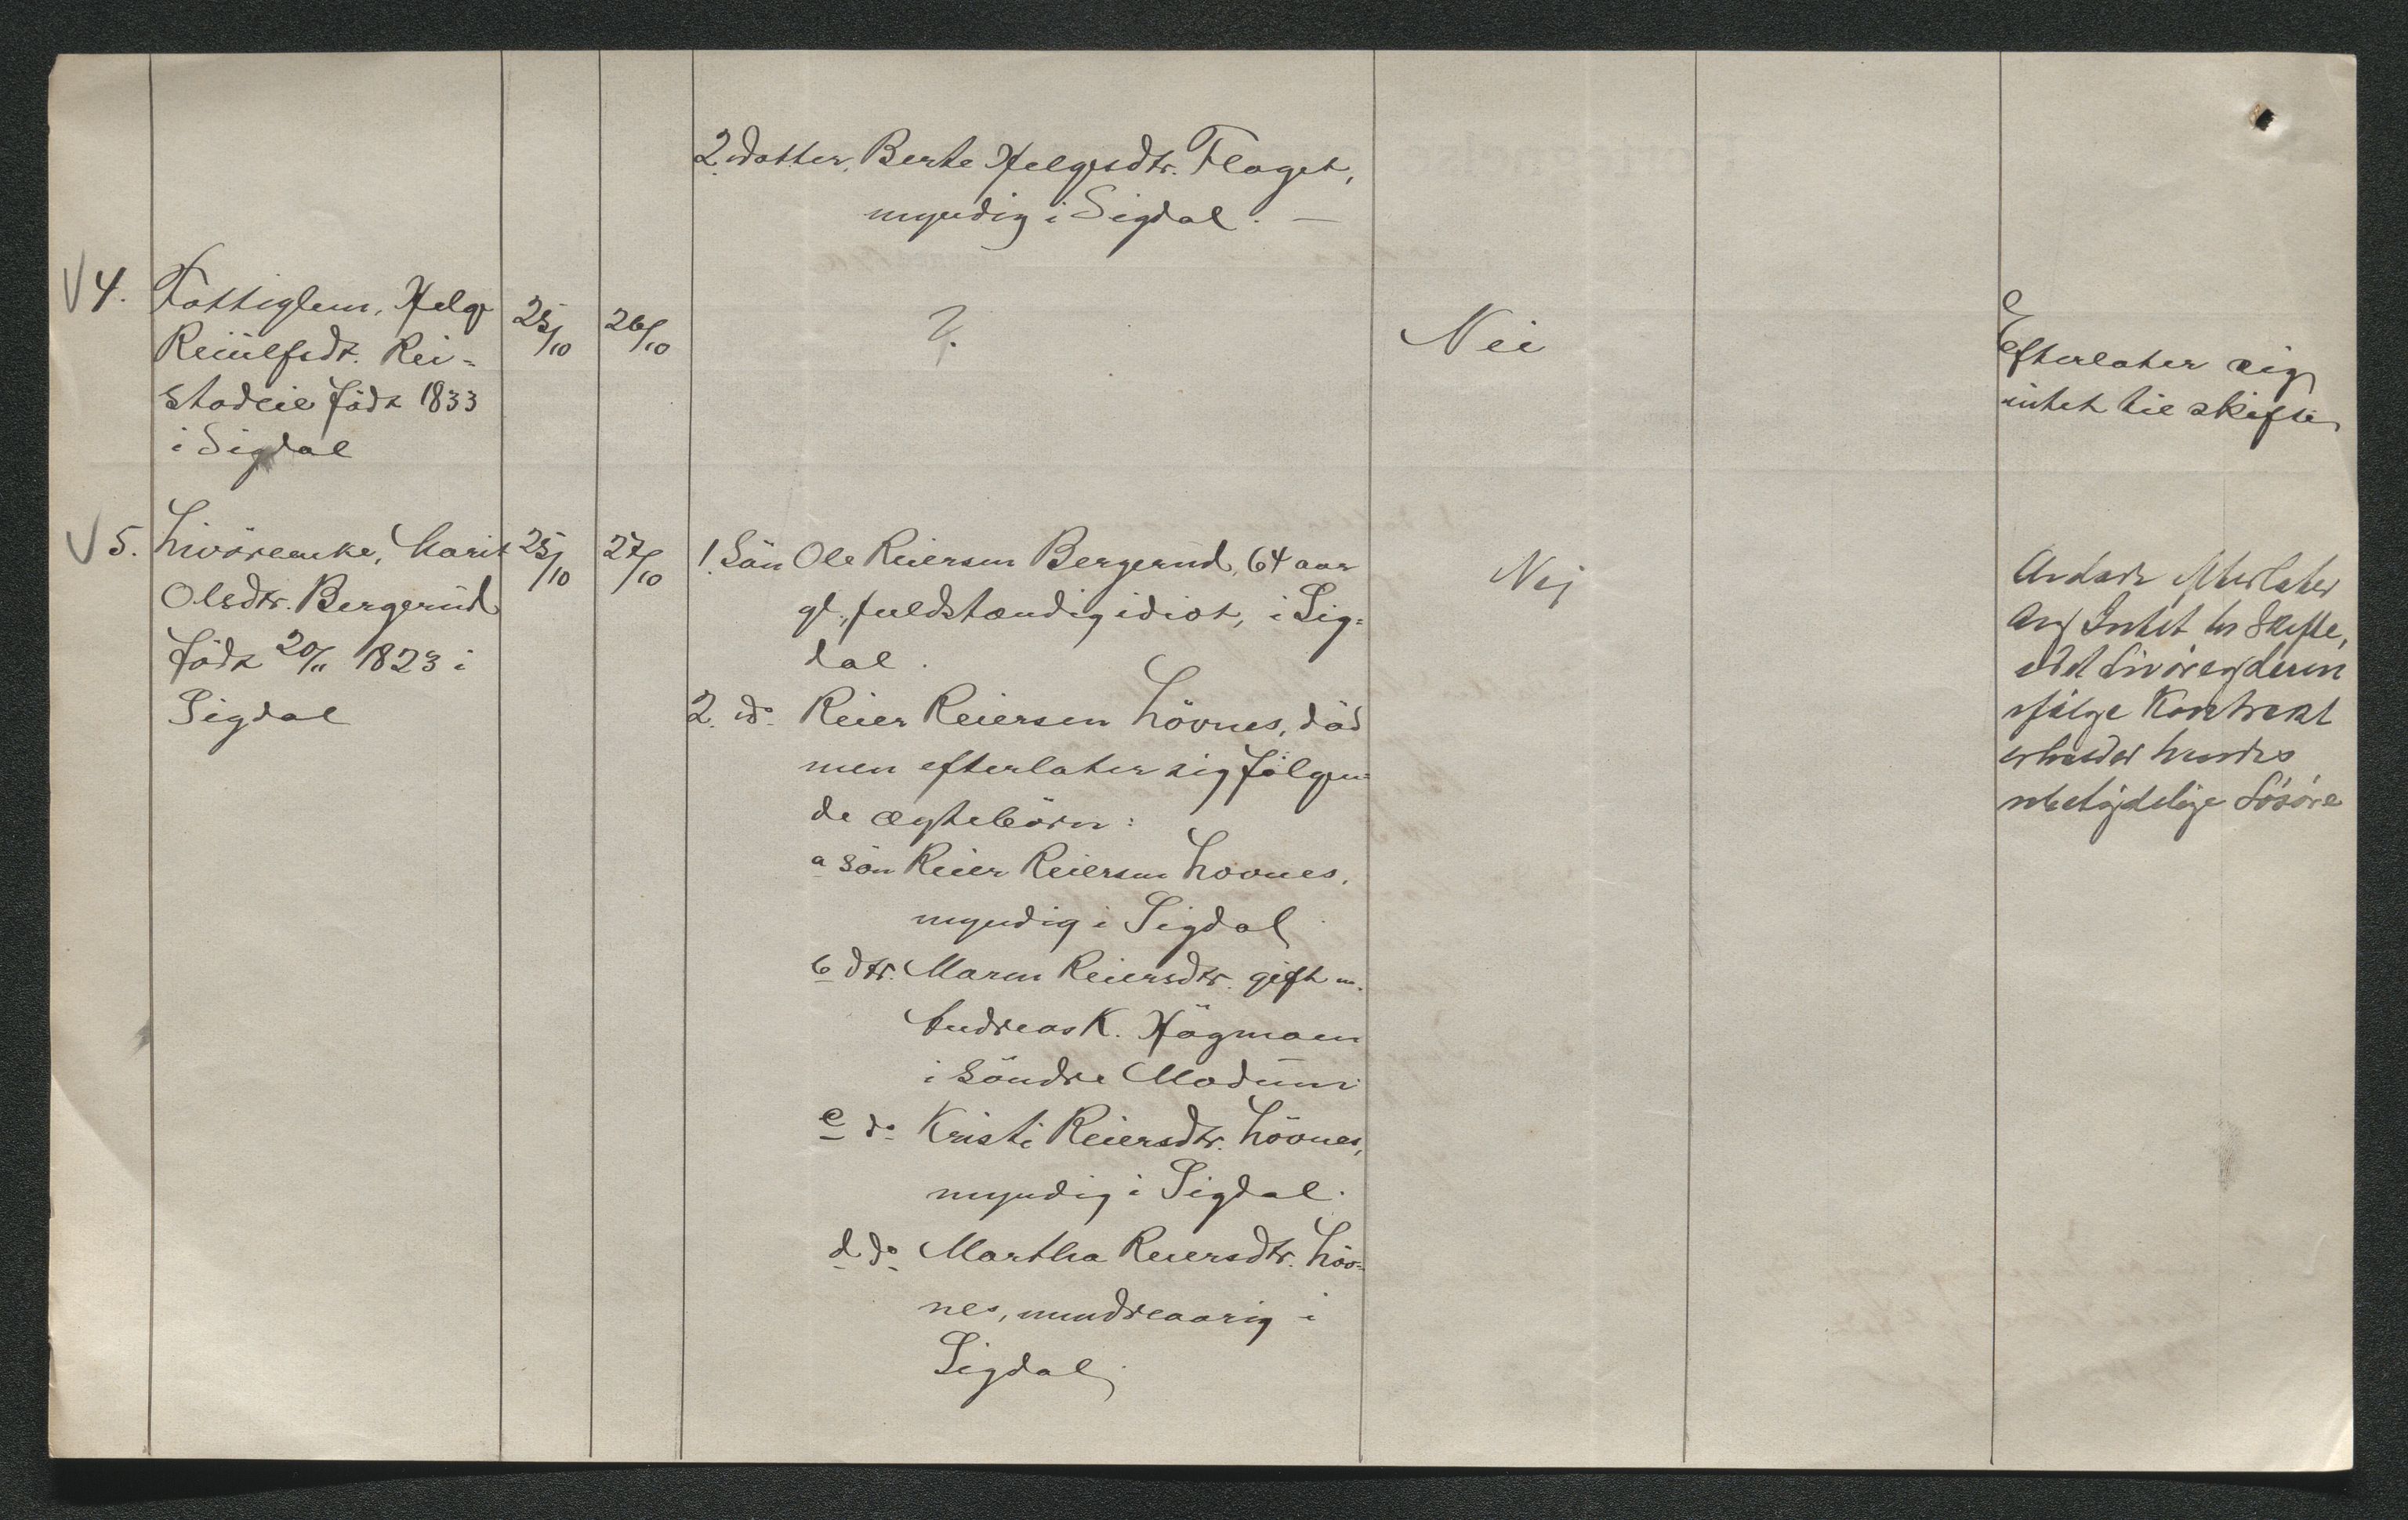 2. datter, Berte Helgesdtr. Flaget,
myndig i Sigdal. —
4. Fattiglem, Helge
Reiulfsdt. Rei-
stadeie född 1833
i Sigdal
25/10
26/10
?
Nei
Efterlater sig
intet til skifte
5. Livörenke, Marit
Olsdtr. Bergerud
född 20/11 1823 i
Sigdal
25/10
27/10
1. Sön Ole Reiersen Bergerud, 64 aar
gl., fuldstændig idiot, i Sig-
dal.
2. do. Reier Reiersen Lövnes, död
men efterlater sig fölgen-
de ægtebörn:
a sön Reier Reiersen Lövnes,
myndig i Sigdal
b dtr. Maren Reiersdtr. gift m.
Andreas K. Hagmoen
i Söndre Modum
c do. Kristi Reiersdtr. Lövnes,
myndig i Sigdal.
d do. Martha Reiersdtr. Löv-
nes, mindreaarig i
Sigdal
Nej
Avdöde efterlater
sig Intet til Skifte,
idet Livöregderen
ifölge Kontrakt
erholder hendes
ubetydelige Lösöre